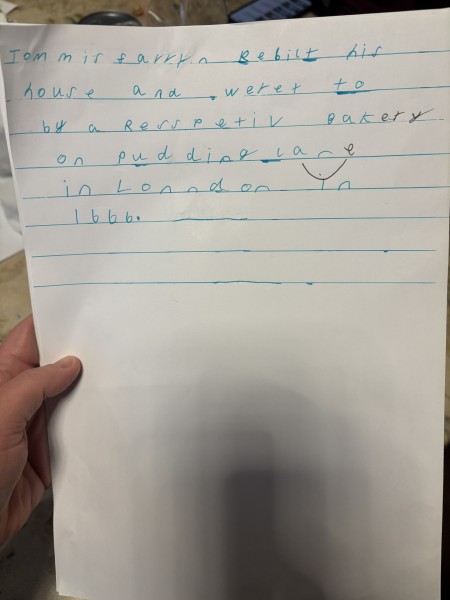 Tommis farryn Rebilt his
house and weret to
by a Resspetiv Bakery
on pudding Lane
in Lonndon in
1666.